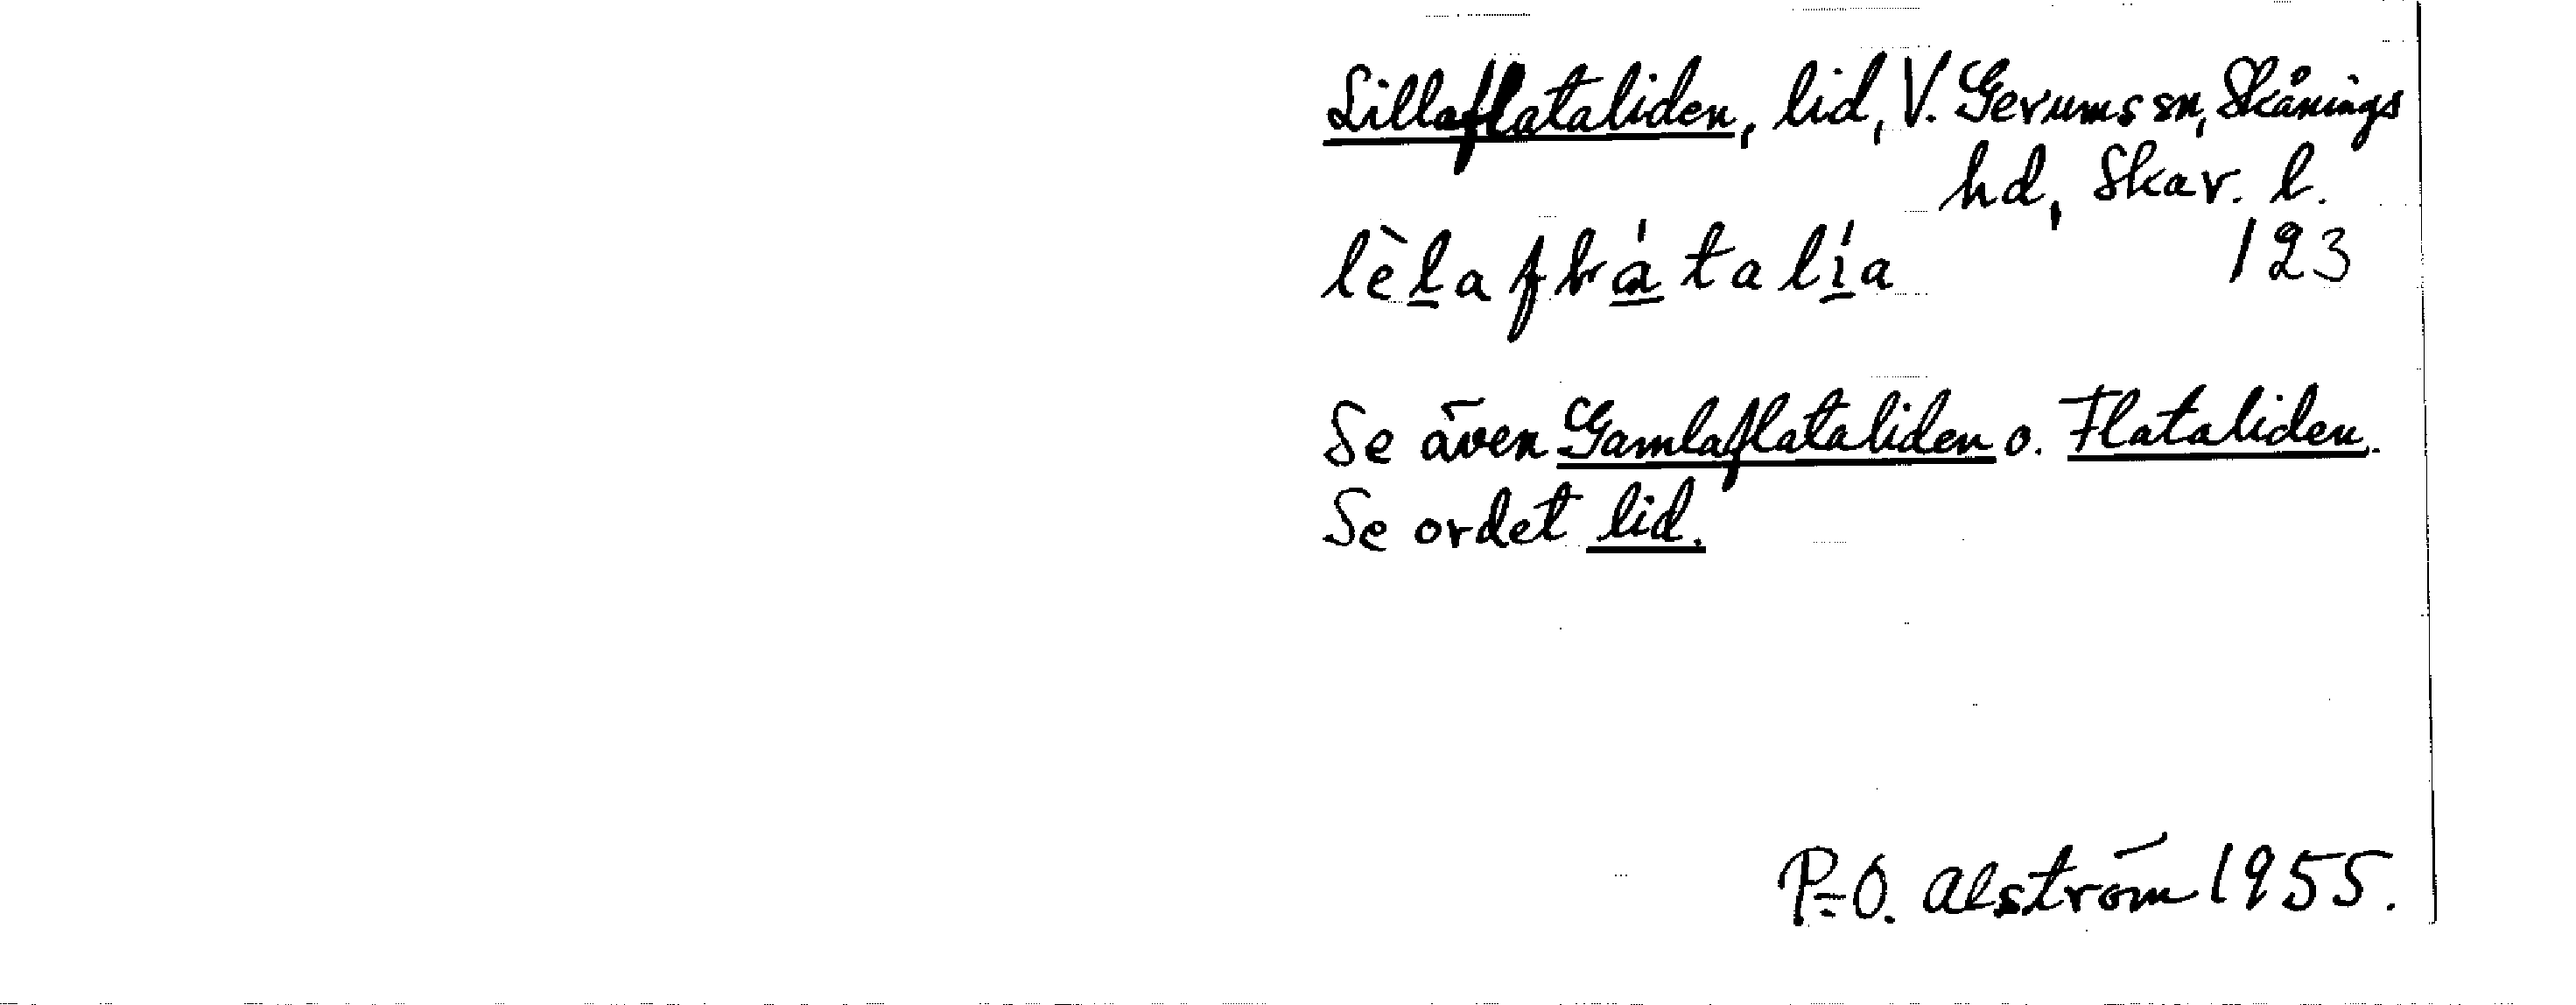 Lillaflataliden, lid, V. Gerums sn, Skånings
hd, Skav. l.
123
Se även Gamlaflataliden o. Flataliden.
Se ordet lid.
P.-O. Alström 1955.